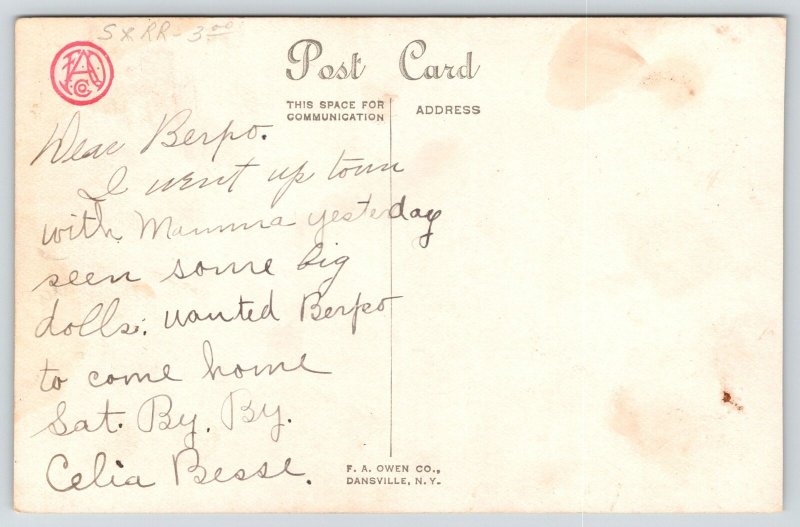 SXRR-3⁰⁰
FAO Co
Post Card
THIS SPACE FOR COMMUNICATION
ADDRESS
Dear Berpo.
I went up town
with Mamma yesterday
seen some big
dolls. wanted Berpo
to come home
Sat. By. By.
Celia Besse.
F. A. OWEN CO.,
DANSVILLE, N.Y.